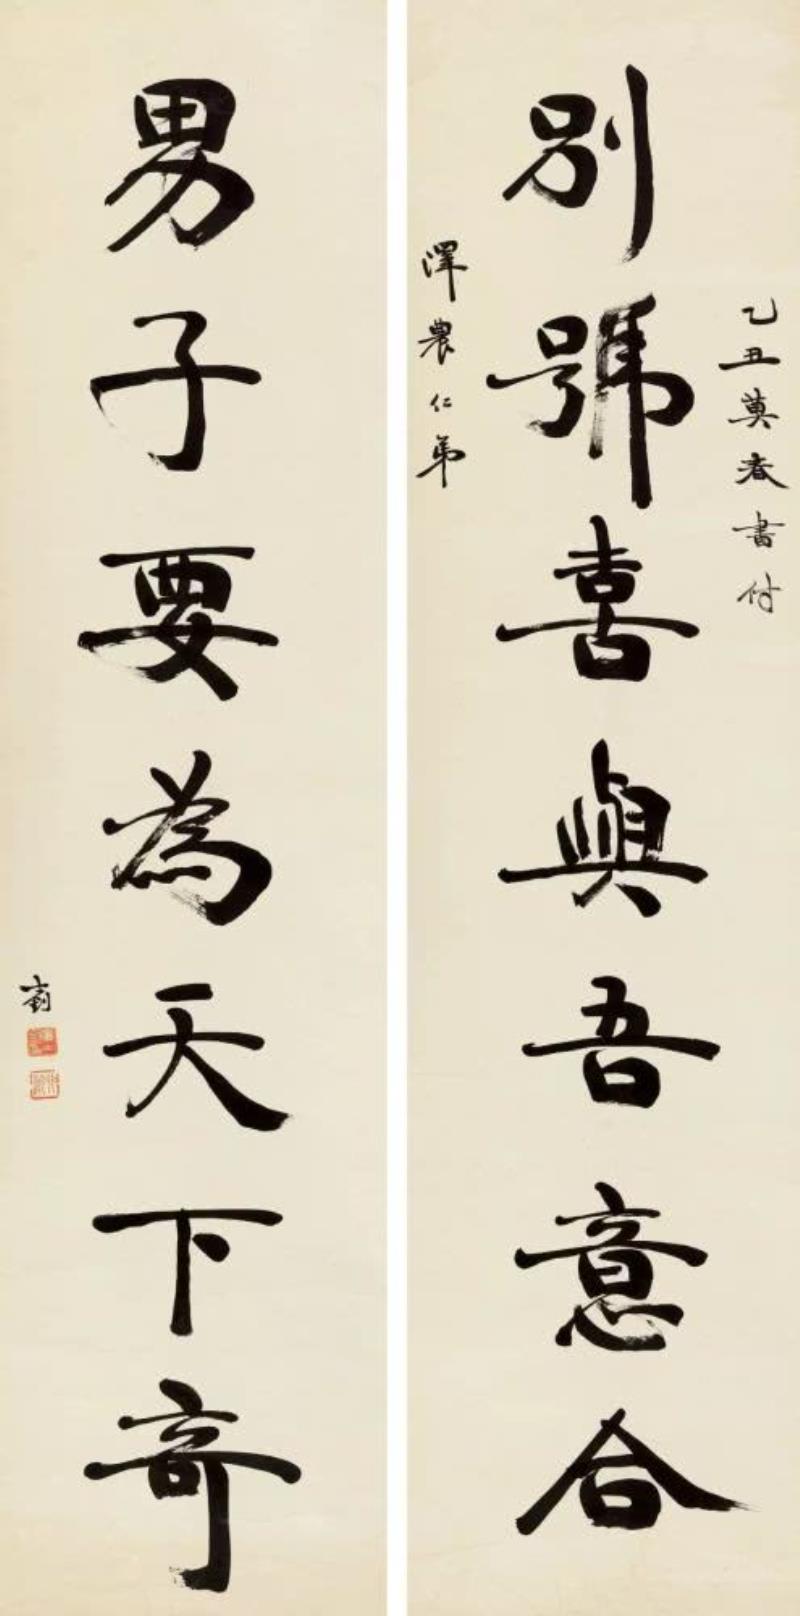 乙丑莫春書付
別號喜與吾意合
澤農仁弟
男子要為天下奇